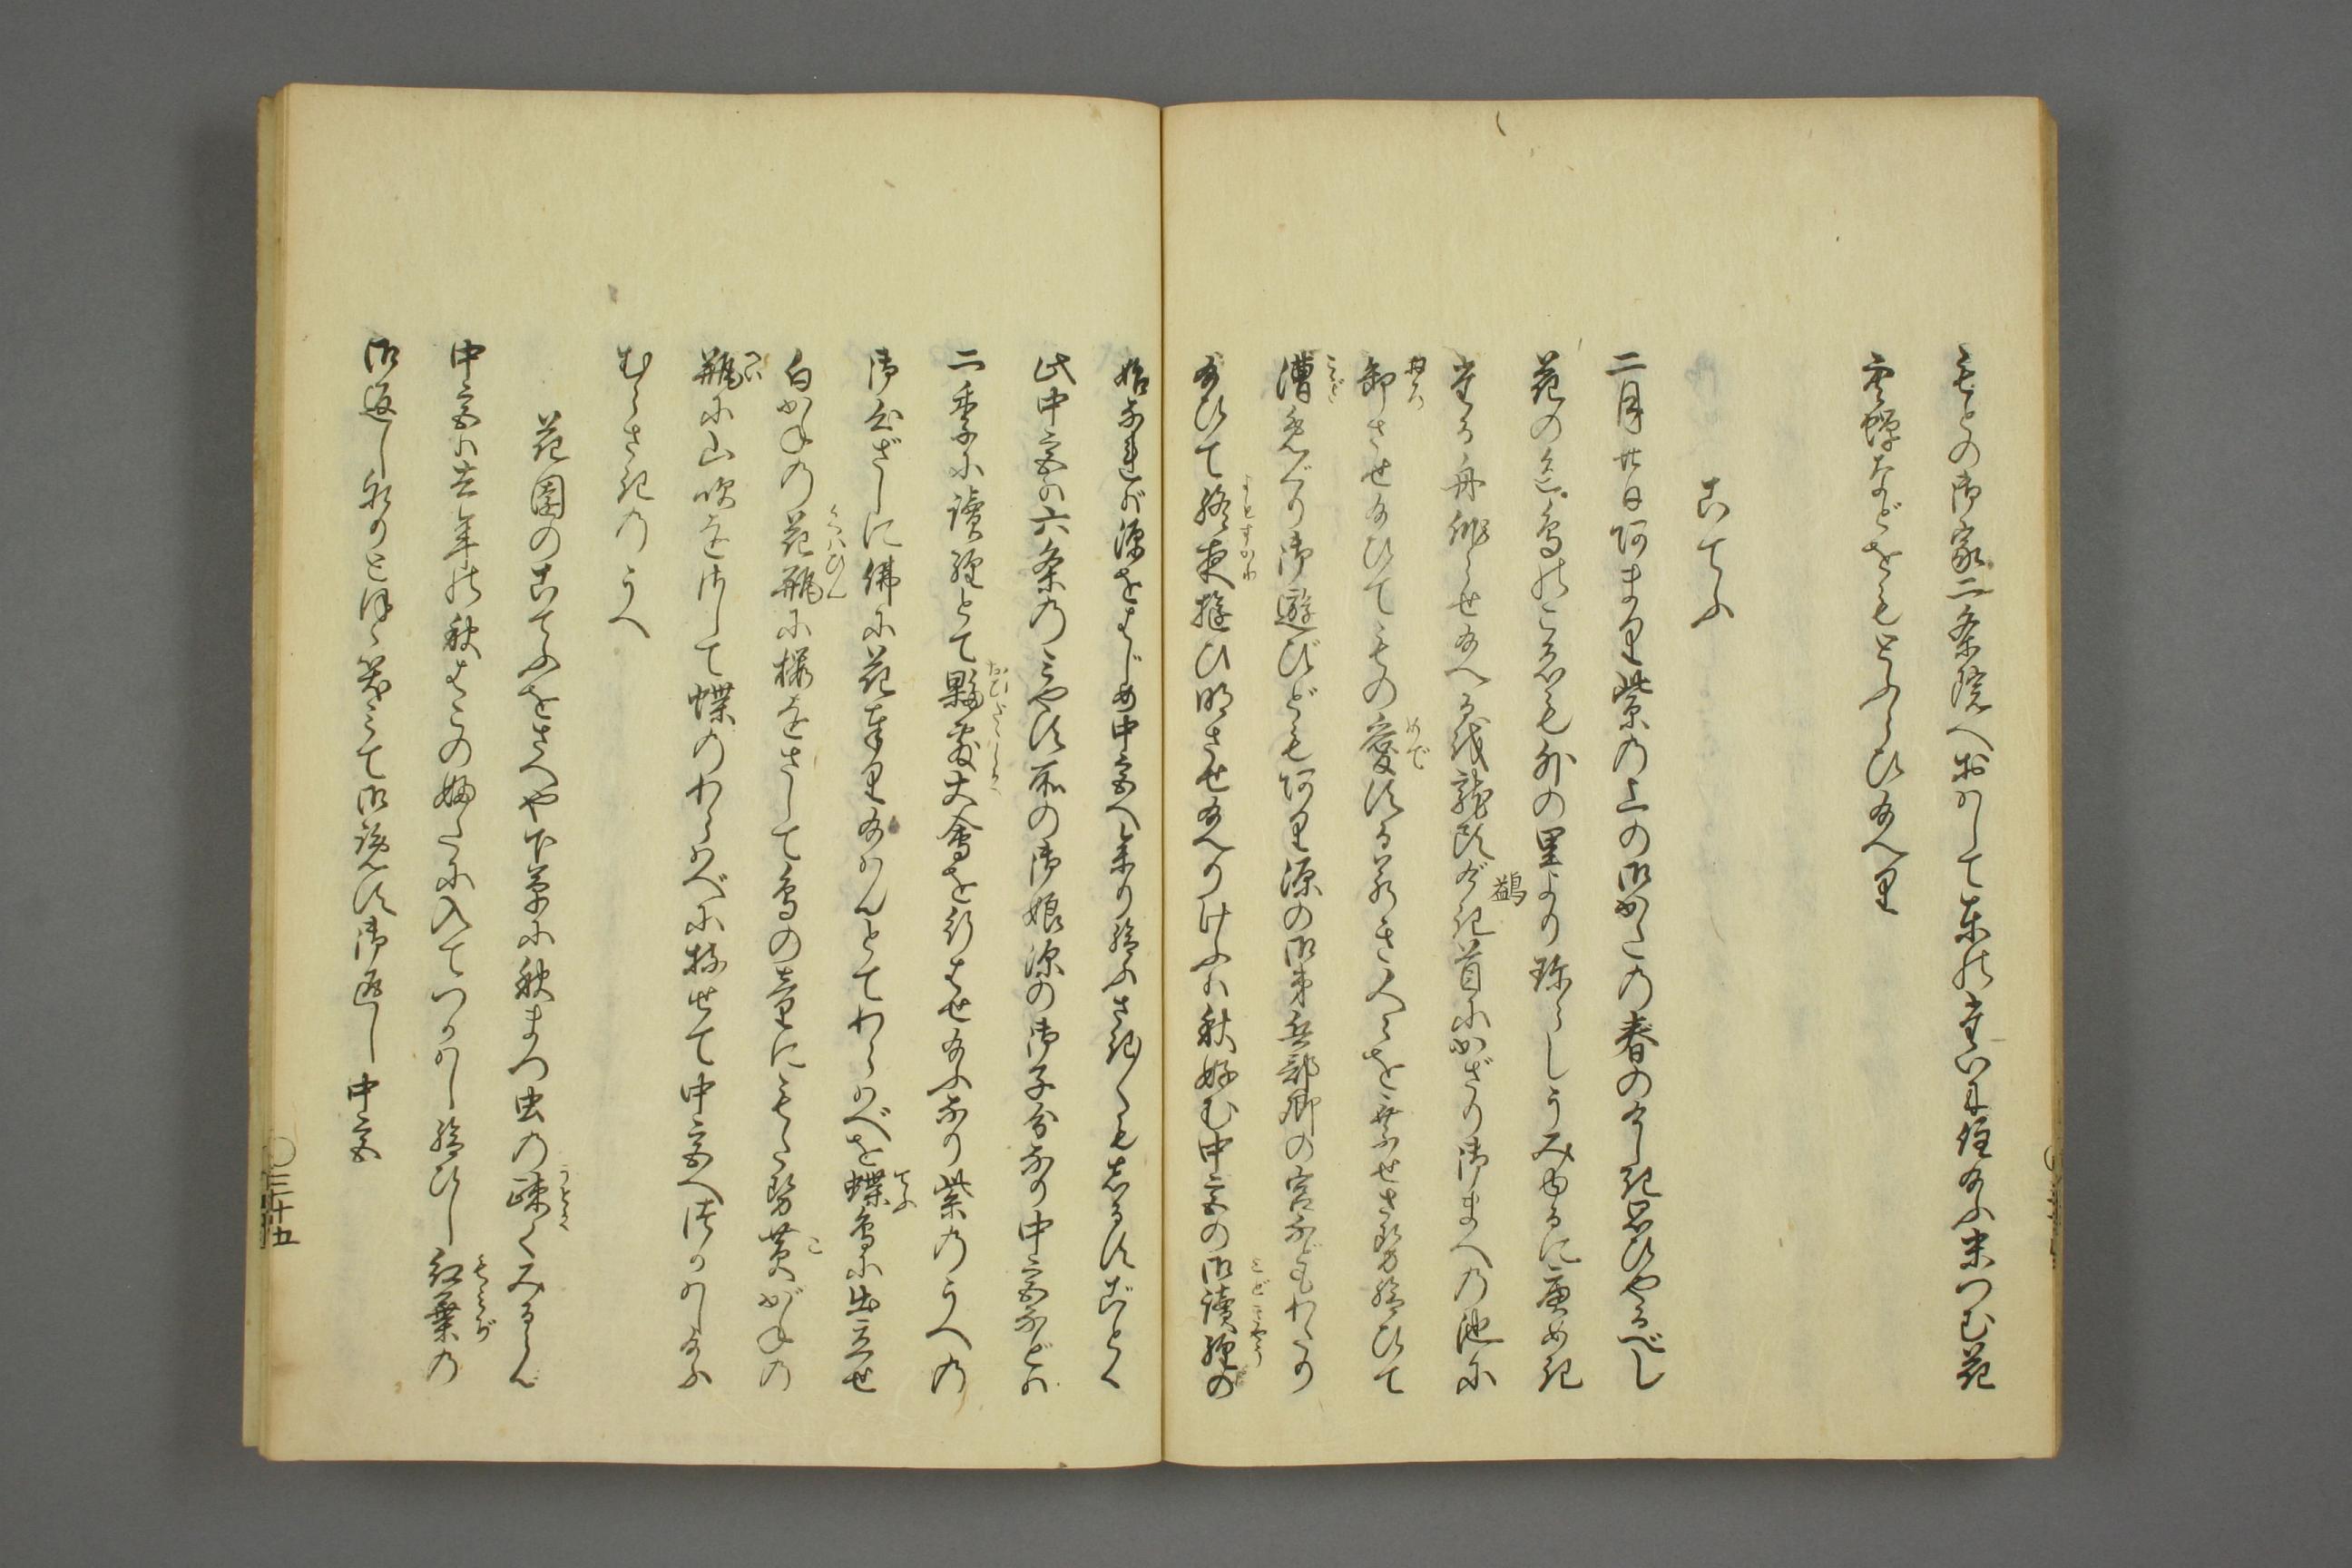 もとの御家二条院へおはして東の対に住給ふ末つむ花
空蝉などをもとふらひ給へり
こてふ
二月廿日あまり紫の上の御かたの春のけしき思ひやるべし
花の色鳥のこゑも外の里よりめづらしうみゆるに唐めき
たる舟作らせ給へる龍頭鷁首にかざり御まへの池に
卸させ給ひてもの愛するわかき人々を乗せさせ給ひて
漕めぐり御遊びどもあり源の御弟兵部卿の宮などもわたり
給ひて終夜遊び明させ給へりけふは秋好む中宮の御読経の
始なれば源をはじめ中宮へ参り給ふさきざきもしるすごとく
此中宮は六条のみやす所の御娘源の御子分なり中宮などは
二季に読経とて大会を行はせ給ふなり紫のうへの
御心ざしに佛に花奉り給はんとてわらはべを蝶鳥に出立せ
白かねの花瓶に桜をさして鳥の童にもたせ黄がねの
瓶に山吹をさして蝶のわらはべに持せて中宮へ遣はし給ふ
むらさきのうへ
花園のこてふをさへや下草に秋まつ虫の疎くみるらん
中宮は去年の秋はこの蓋に入てつかはし給ひし紅葉の
御返しなりとほゝ笑みて御覧ず御返し 中宮
三十五